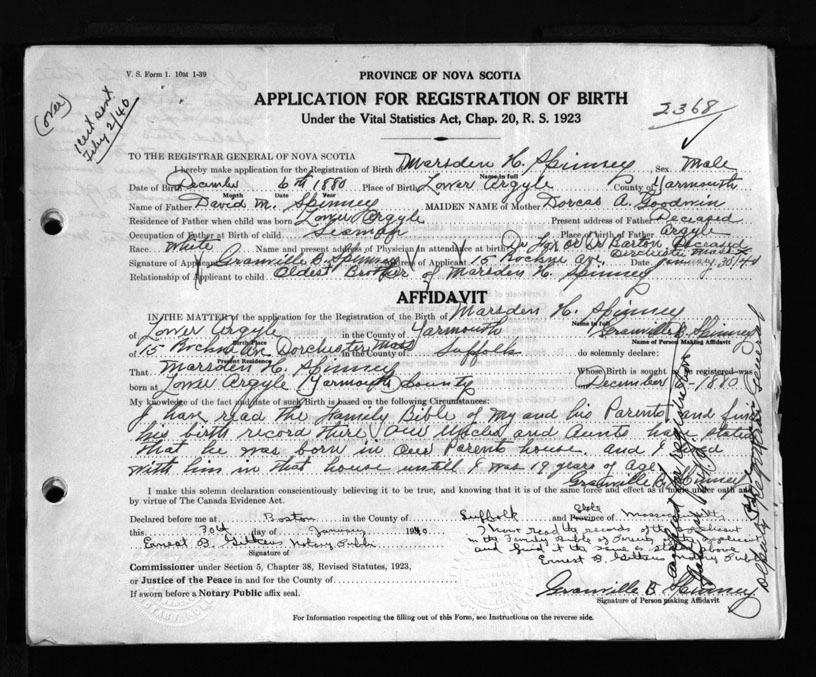 V. S. Form 1. 10M 1-39
(over)
1 cert sent.
Feby 2/40
PROVINCE OF NOVA SCOTIA
APPLICATION FOR REGISTRATION OF BIRTH
2368
Under the Vital Statistics Act, Chap. 20, R. S. 1923
TO THE REGISTRAR GENERAL OF NOVA SCOTIA
I hereby make application for the Registration of Birth of Marsden H. Spinney Sex Male
Name in full
Date of Birth December 6th 1880 Place of Birth Lower Argyle County of Yarmouth
Month Date Year
Name of Father David M. Spinney MAIDEN NAME of Mother Dorcas A. Goodwin
Residence of Father when child was born Lower Argyle Present address of Father Deceased
Occupation of Father at Birth of child Seaman Place of birth of Father Argyle
Race White Name and present address of Physician in attendance at birth Barton Deceased
Signature of Applicant Granville B. Spinney of Applicant 15 Rockne Ave. Dorchester Mass Date January 30/40
Relationship of Applicant to child Oldest Brother of Marsden H. Spinney
AFFIDAVIT
IN THE MATTER of the application for the Registration of the Birth of Marsden H. Spinney
Name in full
of Lower Argyle in the County of Yarmouth Granville B. Spinney
Birth Place Name of Person Making Affidavit
of 15 Rockne Av. Dorchester Mass in the County of Suffolk do solemnly declare:
Present Residence
That Marsden H. Spinney Whose Birth is sought to be registered was
born at Lower Argyle (Yarmouth) County December 1880
My knowledge of the fact and date of such Birth is based on the following Circumstances:
I have read the Family Bible of my and his Parents and find
his birth record there, our Uncles and Aunts have stated
that he was born in our Parents house. and I lived
with him in that house untill I was 19 years of age.
Granville B. Spinney
I make this solemn declaration conscientiously believing it to be true, and knowing that it is of the same force and effect as if made under oath and
by virtue of The Canada Evidence Act.
Declared before me at Boston in the County of Suffolk and State Province of Massachusetts
this 30th day of January 1940
I have read the records of the applicant
in the Family Bible of applicant
and find it the same as stated above
Ernest B. Notary Public
Ernest B. Notary Public
Signature of
Commissioner under Section 5, Chapter 38, Revised Statutes, 1923,
or Justice of the Peace in and for the County of
If sworn before a Notary Public affix seal.
Granville B. Spinney
Signature of Person making Affidavit
For Information respecting the filling out of this Form, see Instructions on the reverse side.
Registration
Deputy Registrar General